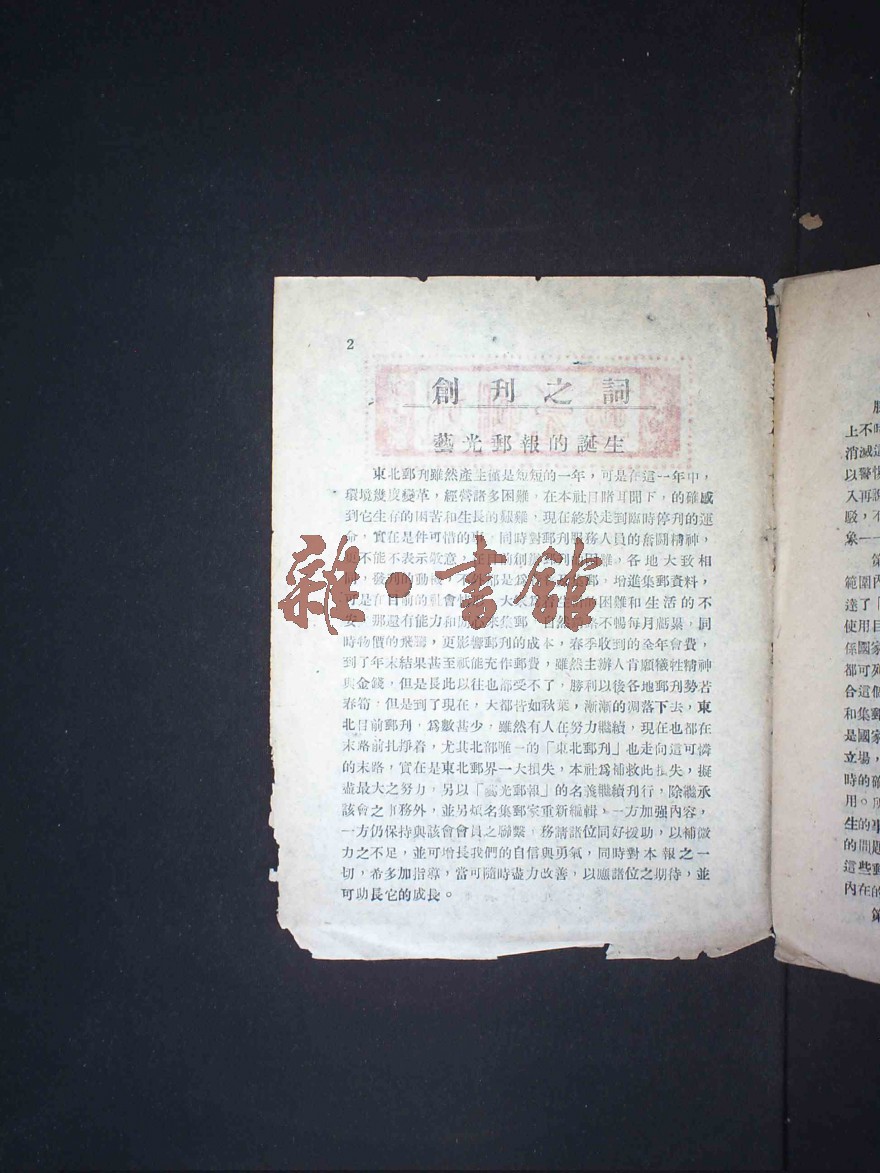 2
創刊之詞
藝光郵報的誕生
東北郵刊雖然產生僅是短短的一年，可是在這一年中，
環境幾度變革，經營諸多困難，在本社目睹耳聞下，的確感
到它生存的困苦和生長的艱難，現在終於走到臨時停刊的運
命，實在是件可惜的事，同時對郵刊服務人員的奮鬪精神，
不能不表示敬意，在目前創辦郵刊的困難，各地大致相
同，發刊的動機，不外都是為郵，增進集郵資料，
可是在目前的社會情，大家困難和生活的不
安，那還有能力和來集郵，自然不暢每月虧累，同
時物價的飛騰，更影響郵刊的成本，春季收到的全年會費，
到了年末結果甚至祇能充作郵費，雖然主辦人肯願犧牲精神
與金錢，但是長此以往也都受不了，勝利以後各地郵刊勢若
春筍，但是到了現在，大都皆如秋葉，漸漸的凋落下去，東
北目前郵刊，爲數甚少，雖然有人在努力繼續，現在也都在
末路前扎掙着，尤其北部唯一的「東北郵刊」也走向這可憐
的末路，實在是東北郵界一大損失，本社爲補救此損失，擬
盡最大之努力，另以「藝光郵報」的名義繼續刊行，除繼承
該會之事務外，並另煩名集郵家重新編輯，一方加强內容，
一方仍保持與該會會員之聯繫，務請諸位同好援助，以補微
力之不足，並可增長我們的自信與勇氣，同時對本報之一
切，希多加指導，當可隨時盡力改善，以應諸位之期待，並
可助長它的成長。
雜·書館
上不時
消滅這
以警惕
入再說
駁，不
象一一
第
範圍內
達了「
使用目
係國家
都可列
合這個
和集郵
是國家
立場，
時的確
用。
生的事
的問題
這些郵
內在的
第